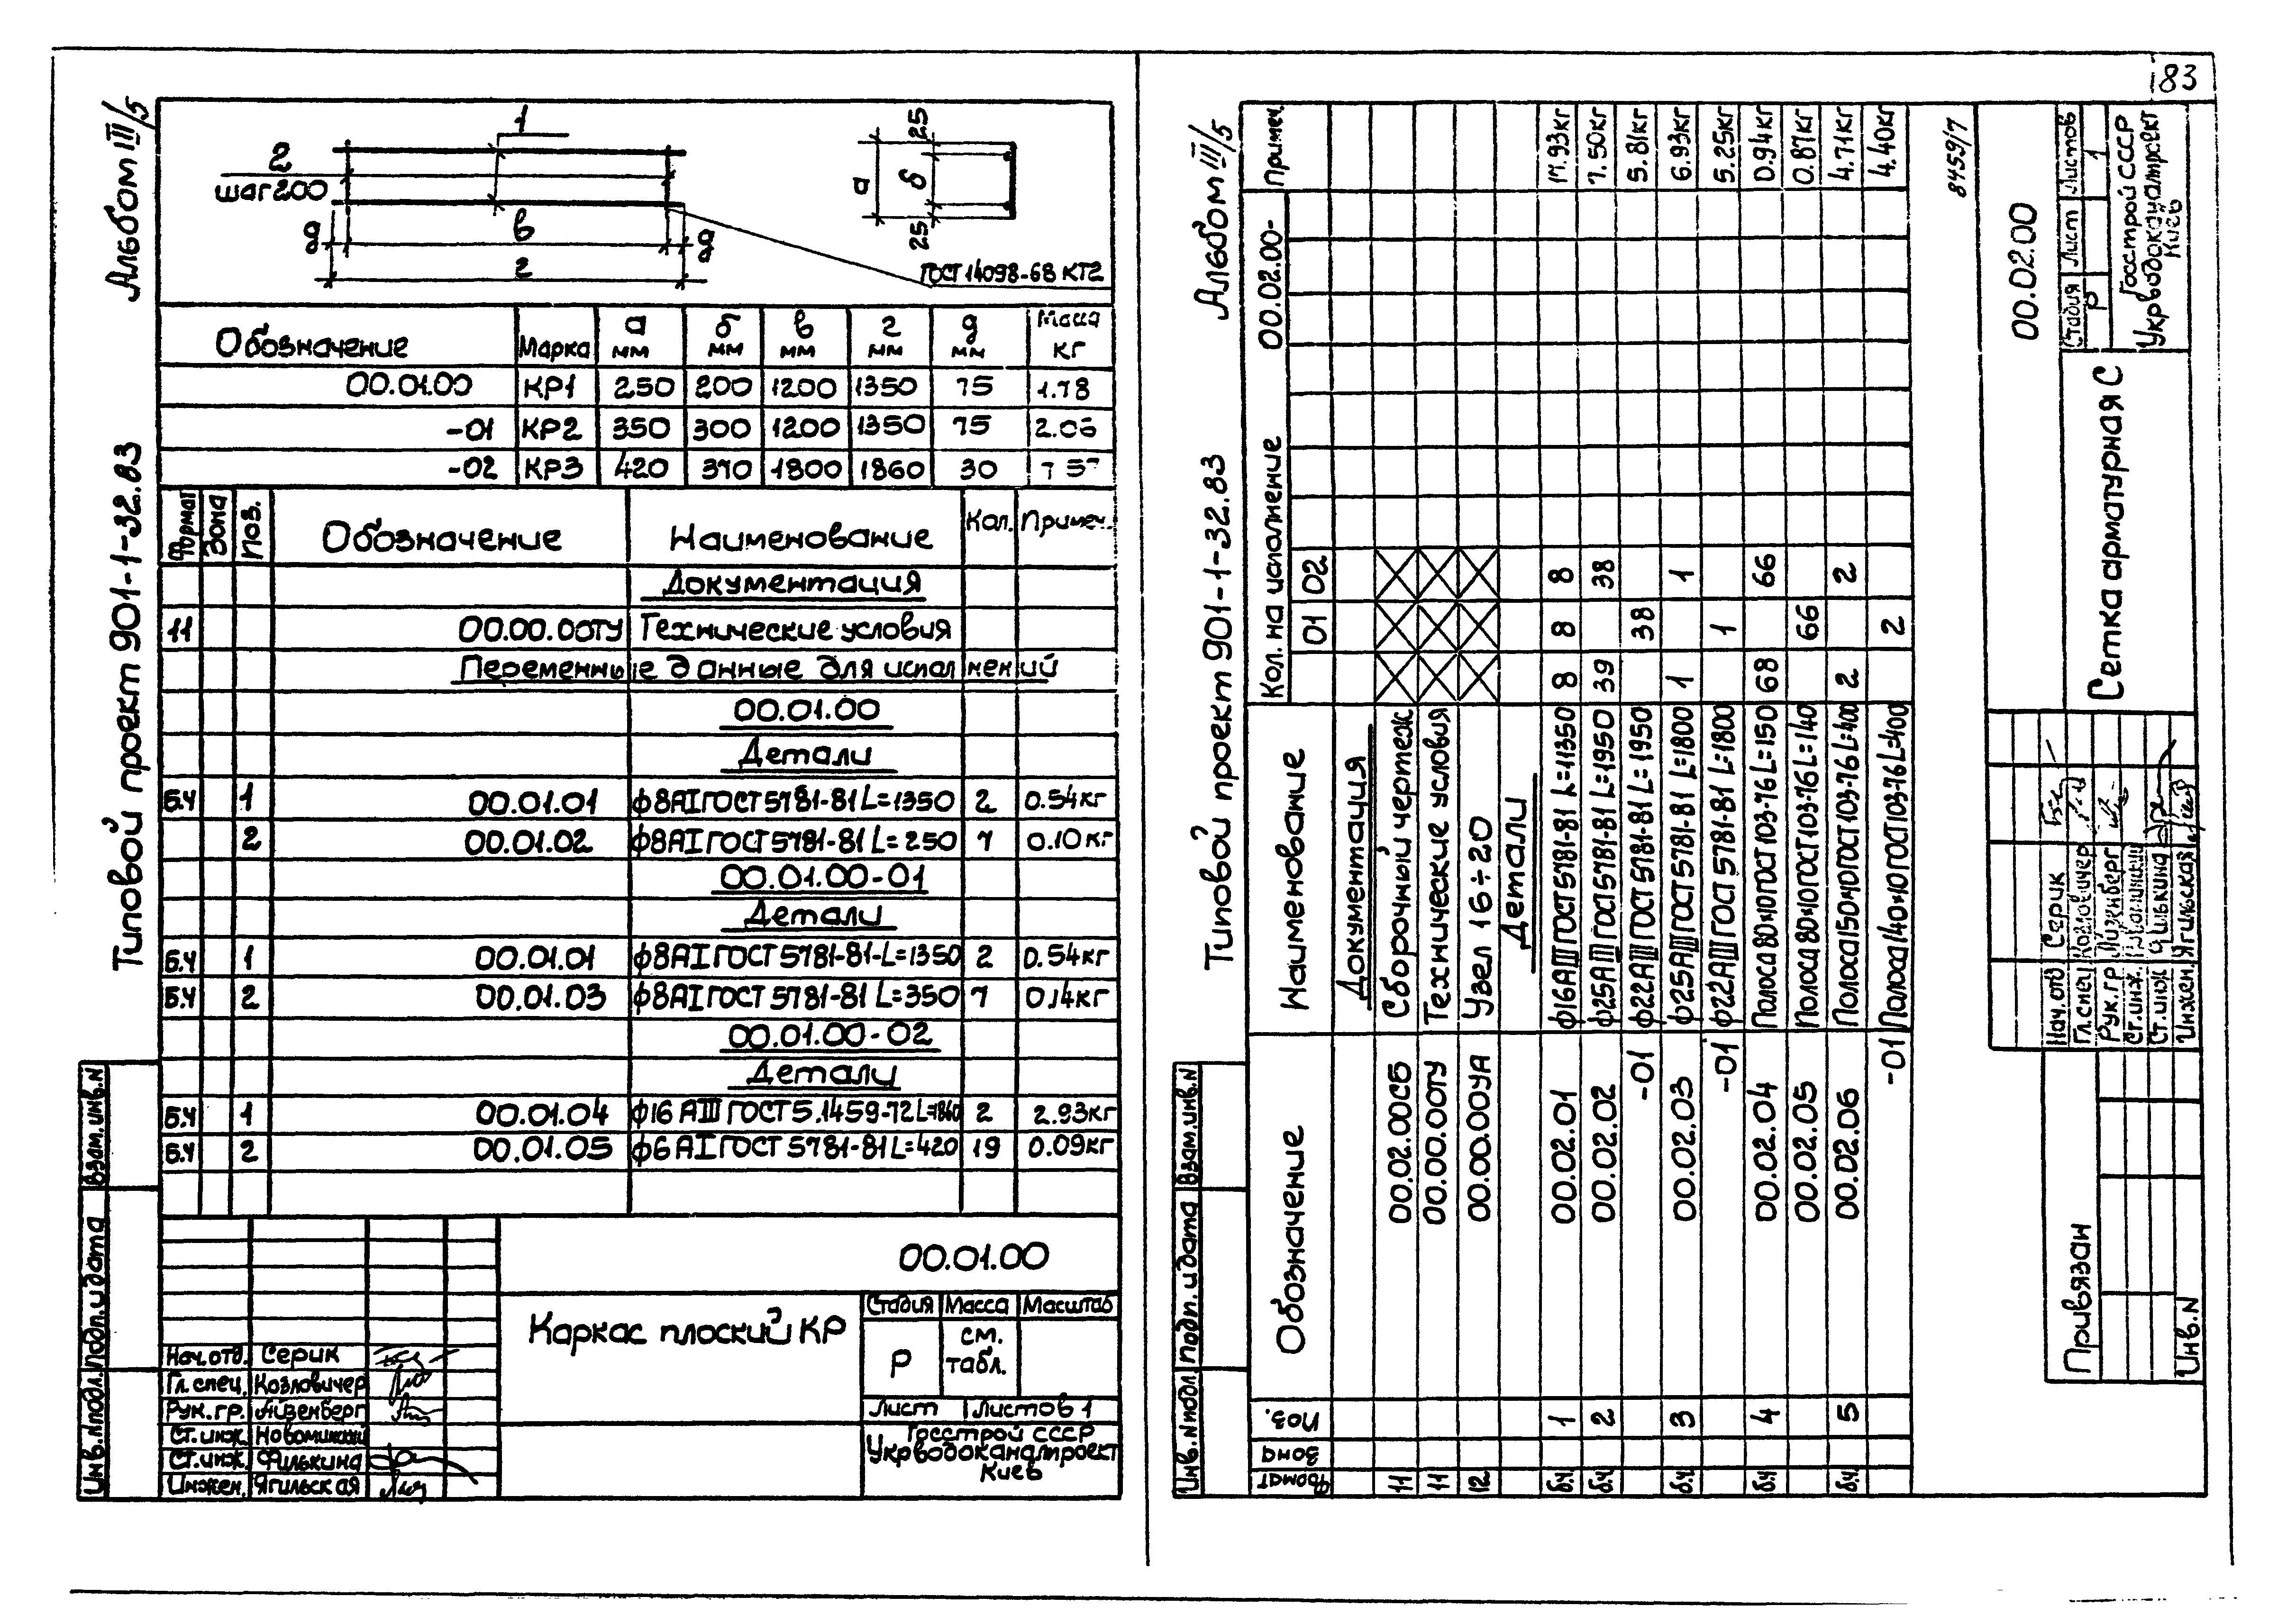 83
Альбом III/5
Типовой проект 901-1-32.83
1
2
шаг 200
д
в
д
г
а
б
25
25
ГОСТ 14098-68 КТ2
Обозначение Марка а мм б мм в мм г мм д мм Масса кг
00.01.00 КР1 250 200 1200 1350 75 1.78
-01 КР2 350 300 1200 1350 75 2.06
-02 КР3 420 370 1800 1860 30
Формат Зона Поз. Обозначение Наименование Кол. Примеч.
Документация
11 00.00.00ТУ Технические условия
Переменные данные для исполнений
00.01.00
Детали
Б.Ч 1 00.01.01 ф8АI ГОСТ 5781-81 L=1350 2 0.54кг
2 00.01.02 ф8АI ГОСТ 5781-81 L=250 7 0.10кг
00.01.00-01
Детали
Б.Ч 1 00.01.01 ф8АI ГОСТ 5781-81-L=1350 2 0.54кг
Б.Ч 2 00.01.03 ф8АI ГОСТ 5781-81 L=350 7 0.14кг
00.01.00-02
Детали
Б.Ч 1 00.01.04 ф16 АIII ГОСТ 5.1459-72 L=1860 2 2.93кг
Б.Ч 2 00.01.05 ф6 АI ГОСТ 5781-81 L=420 19 0.09кг
Взам.инв.N
Подп. и дата
Инв.N подл.
00.01.00
Каркас плоский КР
Стадия Масса Масштаб
Р см. табл.
Лист Листов 1
Госстрой СССР
Укрводоканалпроект
Киев
Нач.отд. Серик
Гл.спец. Козловичер
Рук.гр. Айзенберг
Ст.инж. Новоминский
Ст.инж. Филькина
Инжен. Ягильская
Альбом III/5
Типовой проект 901-1-32.83
Формат Зона Поз. Обозначение Наименование Кол. на исполнение 00.02.00- Примеч.
01 02
Документация
11 00.02.00СБ Сборочный чертеж
11 00.00.00ТУ Технические условия
12 00.00.00УА Узел 16÷20
Детали
б.ч. 1 00.02.01 ф16АIII ГОСТ 5781-81 L=1350 8 8 8 17.93кг
б.ч. 2 00.02.02 ф25АIII ГОСТ 5781-81 L=1950 39 38 7.50кг
-01 ф22АIII ГОСТ 5781-81 L=1950 38 5.81кг
б.ч. 3 00.02.03 ф25АIII ГОСТ 5781-81 L=1800 1 1 6.93кг
-01 ф22АIII ГОСТ 5781-81 L=1800 1 5.25кг
б.ч. 4 00.02.04 Полоса 80×10 ГОСТ 103-76 L=150 68 66 0.94кг
00.02.05 Полоса 80×10 ГОСТ 103-76 L=140 66 0.87кг
б.ч. 5 00.02.06 Полоса 150×10 ГОСТ 103-76 L=400 2 2 4.71кг
-01 Полоса 140×10 ГОСТ 103-76 L=400 2 4.40кг
8459/7
Взам.инв.N
Подп. и дата
Инв.N подл
00.02.00
Сетка арматурная С
Стадия Лист Листов
Р 1
Госстрой СССР
Укрводоканалпроект
Киев
Нач.отд Серик
Гл.спец Козловичер
Рук.гр. Айзенберг
Ст.инж.
Ст.инж Филькина
Инжен. Ягильская
Привязан
Инв.N